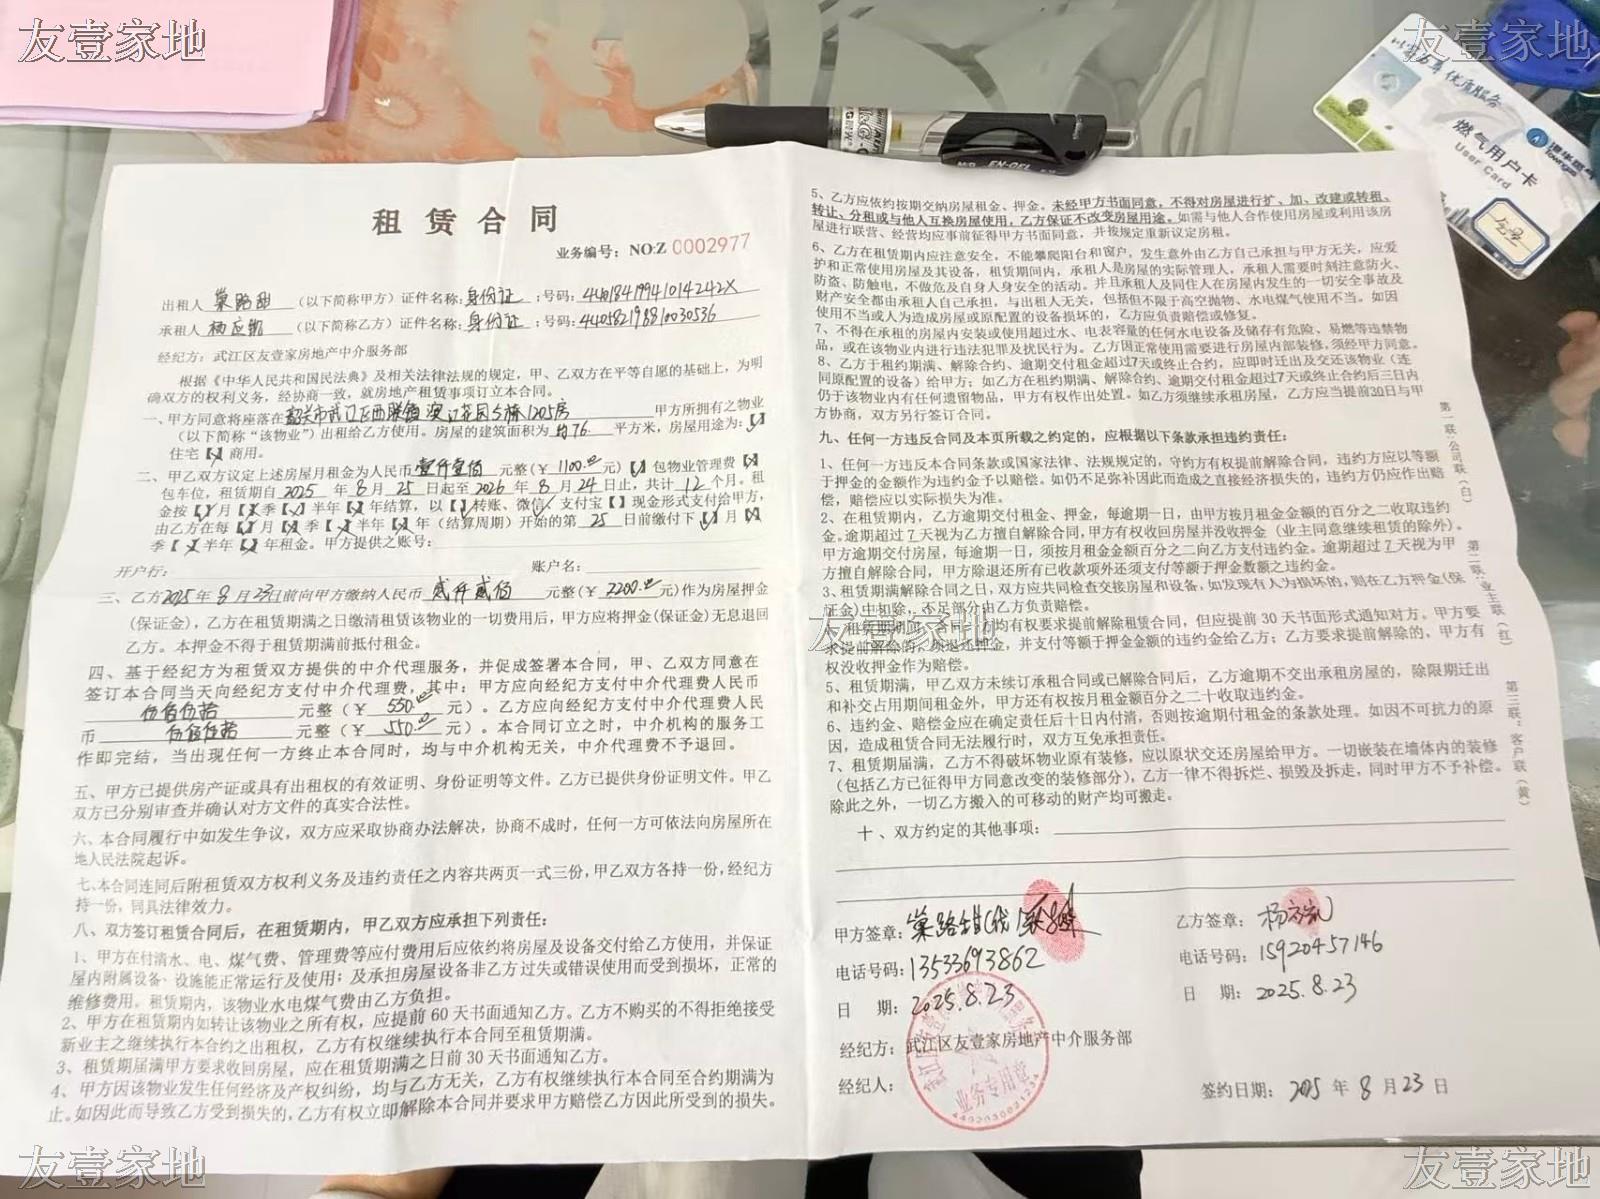 友壹家地
友壹家地
以客为尊 优质服务
燃气用户卡
User Card
Towngas
租赁合同
业务编号：NO:Z 0002977
出租人 （以下简称甲方）证件名称：身份证；号码：44018419941014242X
承租人 杨应凯（以下简称乙方）证件名称：身份证；号码：440582198810030536
经纪方：武江区友壹家房地产中介服务部
根据《中华人民共和国民法典》及相关法律法规的规定，甲、乙双方在平等自愿的基础上，为明
确双方的权利义务，经协商一致，就房地产租赁事项订立本合同。
一、甲方同意将座落在韶关市武江区西联镇 花园5栋1205房 甲方所拥有之物业
（以下简称“该物业”）出租给乙方使用。房屋的建筑面积为 约76 平方米，房屋用途为：【√】
住宅【×】商用。
二、甲乙双方议定上述房屋月租金为人民币 壹仟壹佰 元整（￥1100.00元）【 】包物业管理费【×】
包车位，租赁期自 2025 年 8 月 25 日起至 2026 年 8 月 24 日止，共计 12 个月。租
金按【√】月【×】季【×】半年【×】年结算，以【 】转账、微信√、支付宝【 】现金形式支付给甲方，
由乙方在每【√】月【×】季【×】半年【×】年（结算周期）开始的第 25 日前缴付下【√】月【×】
季【×】半年【×】年租金。甲方提供之账号：
开户行： 账户名：
三、乙方2025年8月23日前向甲方缴纳人民币 贰仟贰佰 元整（￥2200.00元)作为房屋押金
(保证金)，乙方在租赁期满之日缴清租赁该物业的一切费用后，甲方应将押金(保证金)无息退回
乙方。本押金不得于租赁期满前抵付租金。
四、基于经纪方为租赁双方提供的中介代理服务，并促成签署本合同，甲、乙双方同意在
签订本合同当天向经纪方支付中介代理费，其中：甲方应向经纪方支付中介代理费人民币
伍佰伍拾 元整（￥ 550.00 元）。乙方应向经纪方支付中介代理费人民
币 伍佰伍拾 元整（￥ 550.00 元）。本合同订立之时，中介机构的服务工
作即完结，当出现任何一方终止本合同时，均与中介机构无关，中介代理费不予退回。
五、甲方已提供房产证或具有出租权的有效证明、身份证明等文件。乙方已提供身份证明文件。甲乙
双方已分别审查并确认对方文件的真实合法性。
六、本合同履行中如发生争议，双方应采取协商办法解决，协商不成时，任何一方可依法向房屋所在
地人民法院起诉。
七、本合同连同后附租赁双方权利义务及违约责任之内容共两页一式三份，甲乙双方各持一份，经纪方
持一份，同具法律效力。
八、双方签订租赁合同后，在租赁期内，甲乙双方应承担下列责任：
1、甲方在付清水、电、煤气费、管理费等应付费用后应依约将房屋及设备交付给乙方使用，并保证
屋内附属设备、设施能正常运行及使用；及承担房屋设备非乙方过失或错误使用而受到损坏，正常的
维修费用。租赁期内，该物业水电煤气费由乙方负担。
2、甲方在租赁期内如转让该物业之所有权，应提前60天书面通知乙方。乙方不购买的不得拒绝接受
新业主之继续执行本合约之出租权，乙方有权继续执行本合同至租赁期满。
3、租赁期届满甲方要求收回房屋，应在租赁期满之日前30天书面通知乙方。
4、甲方因该物业发生任何经济及产权纠纷，均与乙方无关，乙方有权继续执行本合同至合约期满为
止。如因此而导致乙方受到损失的，乙方有权立即解除本合同并要求甲方赔偿乙方因此所受到的损失。
5、乙方应依约按期交纳房屋租金、押金。未经甲方书面同意，不得对房屋进行扩、加、改建或转租、
转让、分租或与他人互换房屋使用，乙方保证不改变房屋用途。如需与他人合作使用房屋或利用该房
屋进行联营、经营均应事前征得甲方书面同意，并按规定重新议定房租。
6、乙方在租赁期内应注意安全，不能攀爬阳台和窗户，发生意外由乙方自己承担与甲方无关，应爱
护和正常使用房屋及其设备，租赁期间内，承租人是房屋的实际管理人，承租人需要时刻注意防火、
防盗、防触电，不做危及自身人身安全的活动。并且承租人及同住人在房屋内发生的一切安全事故及
财产安全都由承租人自己承担，与出租人无关，包括但不限于高空抛物、水电煤气使用不当。如因
使用不当或人为造成房屋或原配置的设备损坏的，乙方应负责赔偿或修复。
7、不得在承租的房屋内安装或使用超过水、电表容量的任何水电设备及储存有危险、易燃等违禁物
品，或在该物业内进行违法犯罪及扰民行为。乙方因正常使用需要进行房屋内部装修，须经甲方同意。
8、乙方于租约期满、解除合约、逾期交付租金超过7天或终止合约，应即时迁出及交还该物业（连
同原配置的设备）给甲方；如乙方在租约期满、解除合约、逾期交付租金超过7天或终止合约后三日内
仍于该物业内有任何遗留物品，甲方有权作出处置。如乙方须继续承租房屋，乙方应当提前30日与甲
方协商，双方另行签订合同。
九、任何一方违反合同及本页所载之约定的，应根据以下条款承担违约责任：
1、任何一方违反本合同条款或国家法律、法规规定的，守约方有权提前解除合同，违约方应以等额
于押金的金额作为违约金予以赔偿。如仍不足弥补因此而造成之直接经济损失的，违约方仍应作出赔
偿，赔偿应以实际损失为准。
2、在租赁期内，乙方逾期交付租金、押金，每逾期一日，由甲方按月租金金额的百分之二收取违约
金。逾期超过 7 天视为乙方擅自解除合同，甲方有权收回房屋并没收押金（业主同意继续租赁的除外）。
甲方逾期交付房屋，每逾期一日，须按月租金金额百分之二向乙方支付违约金。逾期超过 7 天视为甲
方擅自解除合同，甲方除退还所有已收款项外还须支付等额于押金数额之违约金。
3、租赁期满解除合同之日，双方应共同检查交接房屋和设备，如发现有人为损坏的，则在乙方押金(保
证金)中扣除，不足部分由乙方负责赔偿。
友壹家地
租赁期 均有权要求提前解除租赁合同，但应提前30天书面形式通知对方。甲方要
求提前解除的， 退还押金，并支付等额于押金金额的违约金给乙方；乙方要求提前解除的，甲方有
权没收押金作为赔偿。
5、租赁期满，甲乙双方未续订承租合同或已解除合同后，乙方逾期不交出承租房屋的，除限期迁出
和补交占用期间租金外，甲方还有权按月租金额百分之二十收取违约金。
6、违约金、赔偿金应在确定责任后十日内付清，否则按逾期付租金的条款处理。如因不可抗力的原
因，造成租赁合同无法履行时，双方互免承担责任。
7、租赁期届满，乙方不得破坏物业原有装修，应以原状交还房屋给甲方。一切嵌装在墙体内的装修
（包括乙方已征得甲方同意改变的装修部分），乙方一律不得拆烂、损毁及拆走，同时甲方不予补偿。
除此之外，一切乙方搬入的可移动的财产均可搬走。
十、双方约定的其他事项：
第一联：公司联（白）
第二联：业主联（红）
第三联：客户联（黄）
甲方签章：
电话号码：13533693862
日 期：2025.8.23
乙方签章：杨应凯
电话号码：15920457146
日 期：2025.8.23
经纪方：武江区友壹家房地产中介服务部
经纪人：
业务专用章
签约日期：2025 年 8 月 23 日
友壹家地
友壹家地